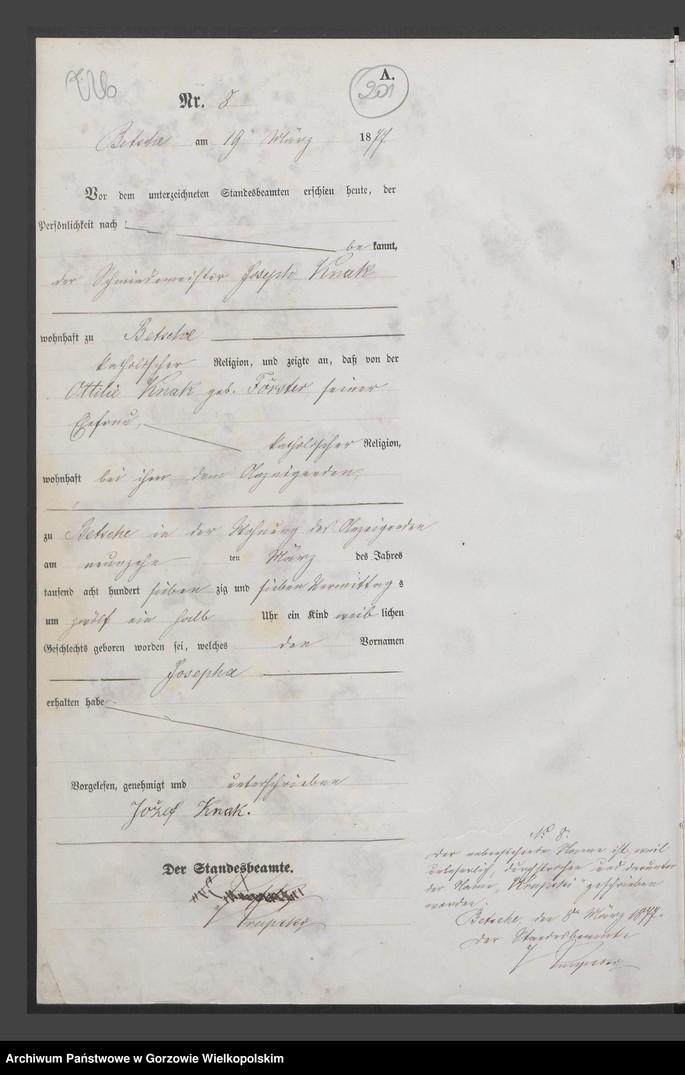 A.
201
Nr. 8
Betsche am 19 März 1877
Vor dem unterzeichneten Standesbeamten erschien heute, der
Persönlichkeit nach
be kannt,
der Schmiedemeister Joseph Knak
wohnhaft zu Betsche
katholischer Religion, und zeigte an, daß von der
Ottilie Knak geb. Förster seiner
Ehefrau,
katholischer Religion,
wohnhaft bei ihm dem Anzeigenden,
zu Betsche in der Wohnung des Anzeigenden
am neunzehn ten März des Jahres
tausend acht hundert sieben zig und sieben Vormittag s
um zwölf ein halb Uhr ein Kind weib lichen
Geschlechts geboren worden sei, welches den Vornamen
Josepha
erhalten habe
Vorgelesen, genehmigt und unterschrieben
Józef Knak.
Der Standesbeamte.
No 8.
Der nebenstehende Name ist weil
unleserlich, durchstrichen und darunter
der Name geschrieben
worden.
Betsche, den März 1877.
Der Standesbeamte
Archiwum Państwowe w Gorzowie Wielkopolskim